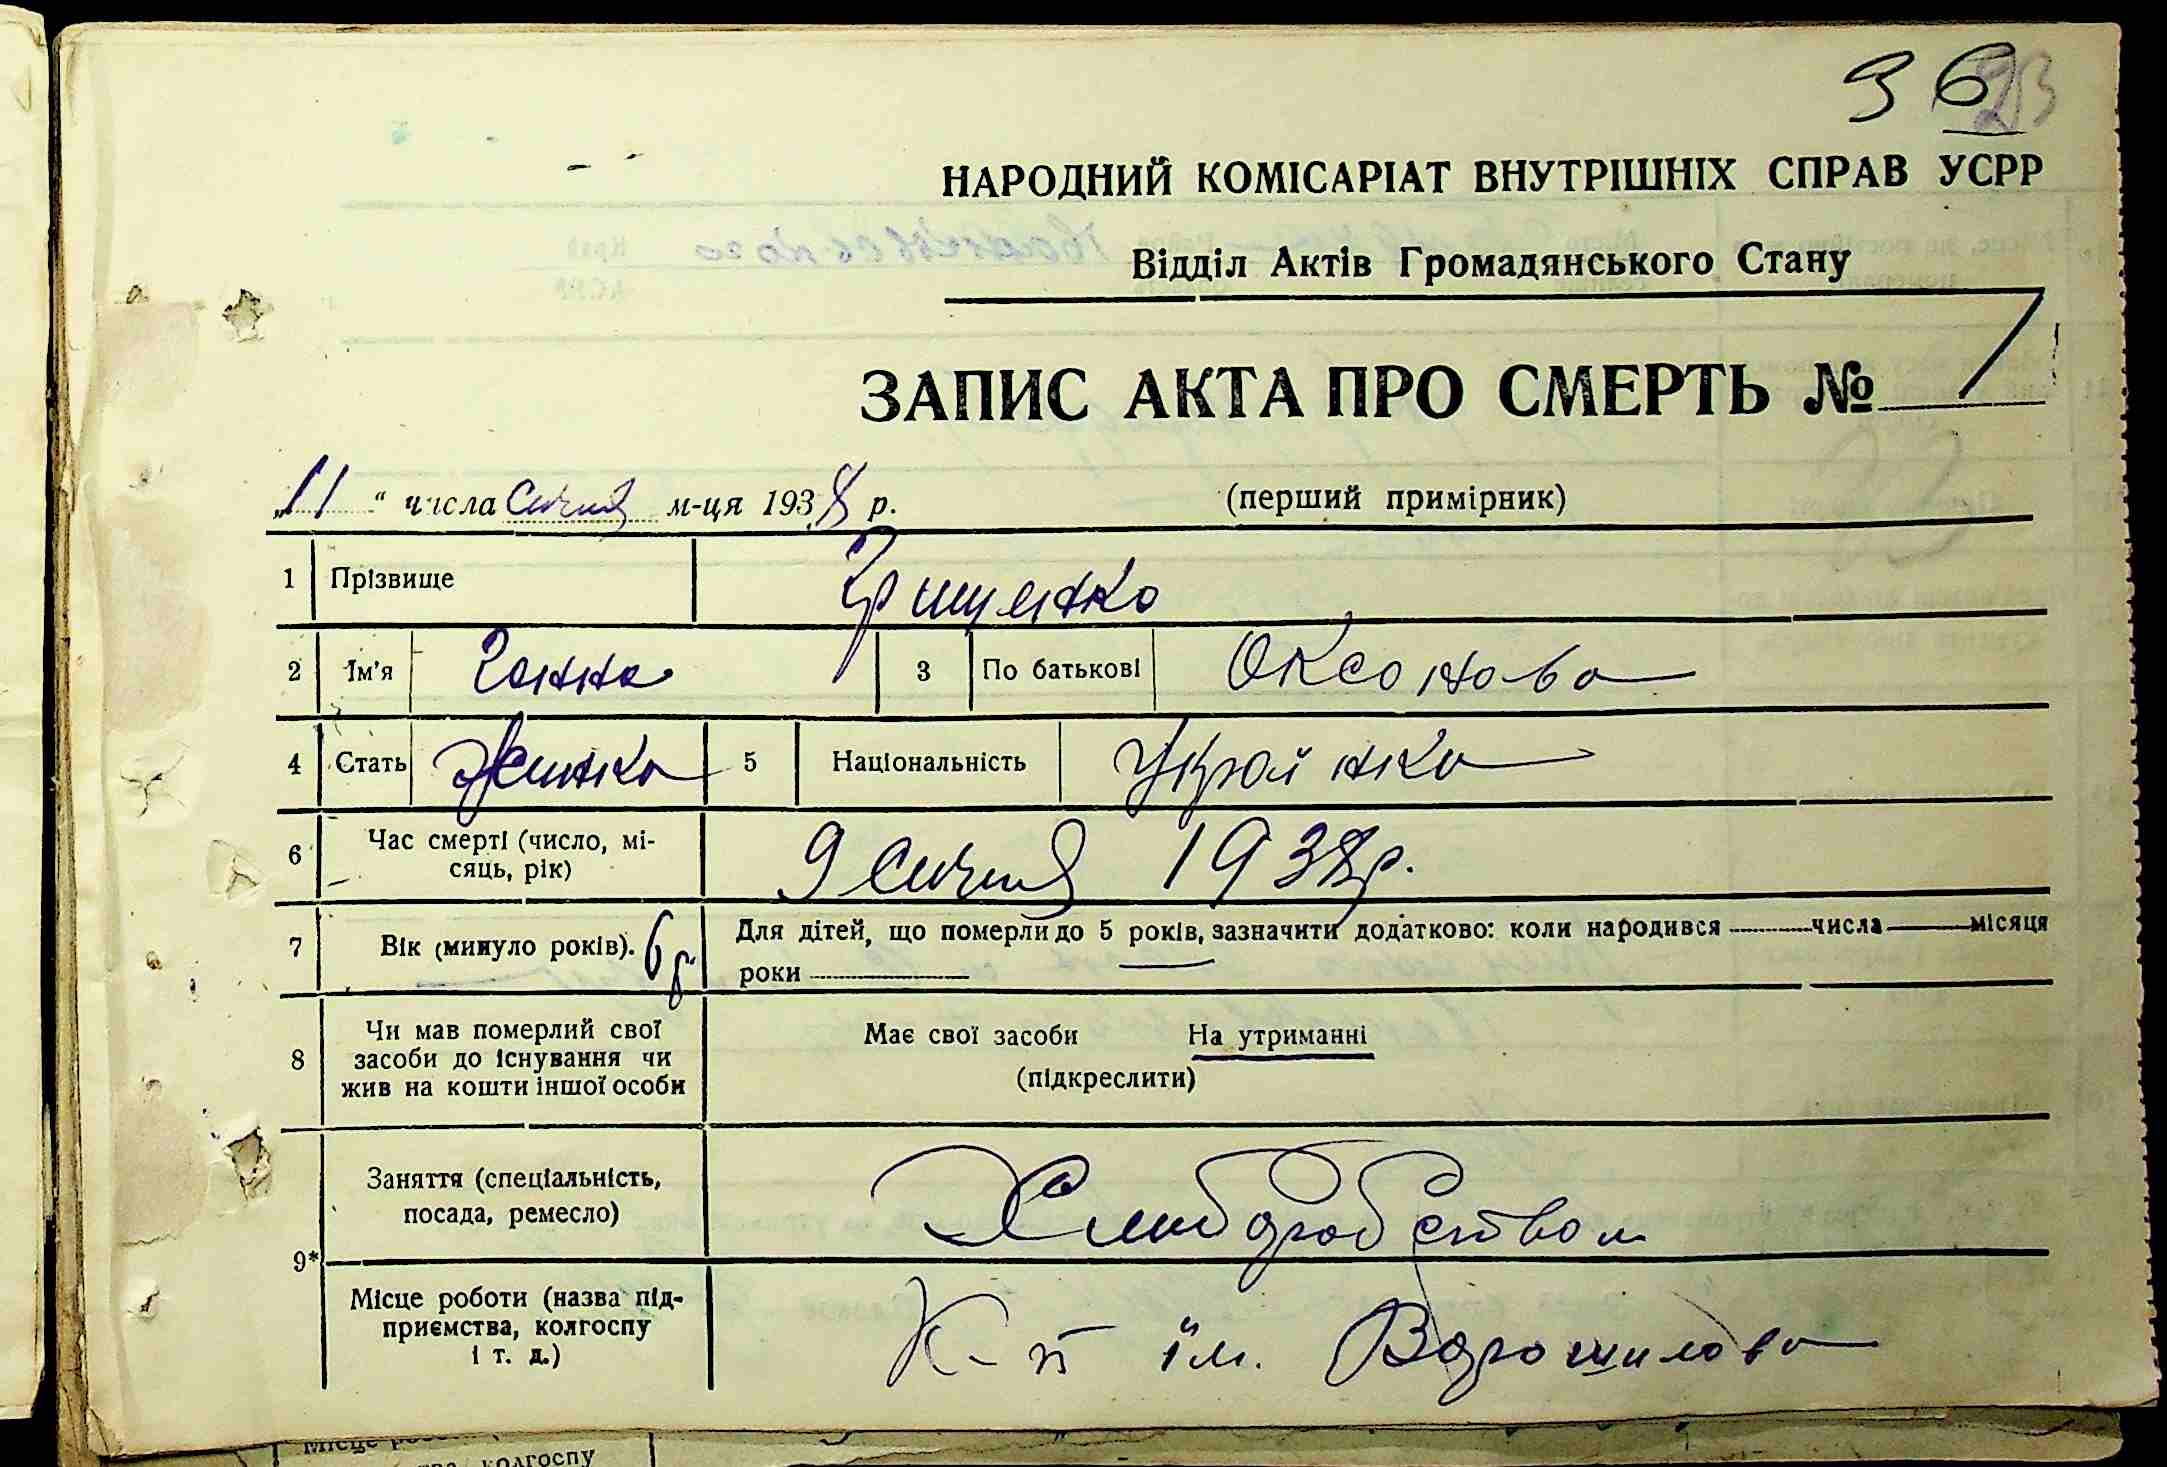 36 23
НАРОДНИЙ КОМІСАРІАТ ВНУТРІШНІХ СПРАВ УСРР
Відділ Актів Громадянського Стану
ЗАПИС АКТА ПРО СМЕРТЬ № 1
„11“ числа Січня м-ця 1938 р. (перший примірник)
1 Прізвище Грищенко
2 Ім'я Ганна 3 По батькові Оксонова
4 Стать Жинка 5 Національність Українка
6 Час смерті (число, мі-
сяць, рік) 9 Січня 1938р.
7 Вік (минуло років). 6 р. Для дітей, що померли до 5 років, зазначити додатково: коли народився числа місяця
роки
8 Чи мав померлий свої
засоби до існування чи
жив на кошти іншої особи
Має свої засоби На утриманні
(підкреслити)
9*
Заняття (спеціальність,
посада, ремесло) Хлиборобством
Місце роботи (назва під-
приємства, колгоспу
і т. д.) К-п їм. Ворошилова
колгоспу